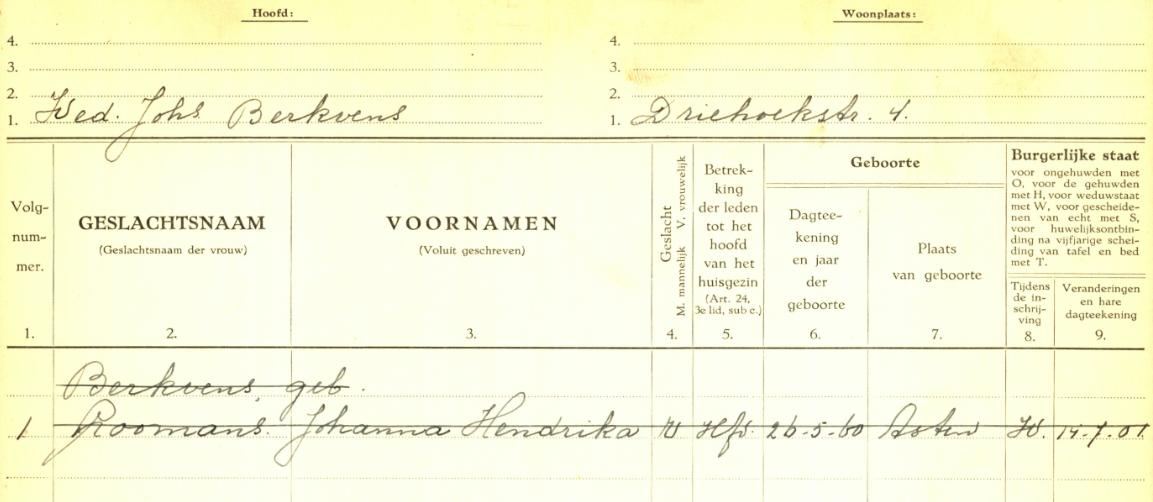 Hoofd: Woonplaats:
4. 4.
3. 3.
2. 2.
1. Wed. Johs Berkvens 1. Driehoekstr. 4.
Volg-
num-
mer.
1.
GESLACHTSNAAM
(Geslachtsnaam der vrouw)
2.
VOORNAMEN
(Voluit geschreven)
3.
Geslacht
M. mannelijk V. vrouwelijk
4.
Betrek-
king
der leden
tot het
hoofd
van het
huisgezin
(Art. 24,
3e lid, sub c.)
5.
Geboorte
Dagtee-
kening
en jaar
der
geboorte
6.
Plaats
van geboorte
7.
Burgerlijke staat
voor ongehuwden met
O, voor de gehuwden
met H, voor weduwstaat
met W, voor gescheide-
nen van echt met S,
voor huwelijksontbin-
ding na vijfjarige schei-
ding van tafel en bed
met T.
Tijdens
de in-
schrij-
ving
8.
Veranderingen
en hare
dagteekening
9.
Berkvens, geb.
1 Roomans. Johanna Hendrika V Hfd. 26-5-60 Asten W. 01